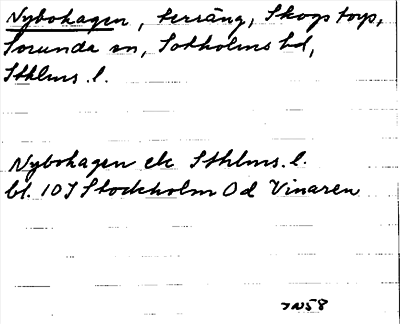 Nybohagen, teräng, Skogstorp,
Sorunda sn, Sotholms hd,
Sthlms. l.
Nybohagen ek Sthlms. l.
bl. 10J Stockholm Od Vinaren
JN58